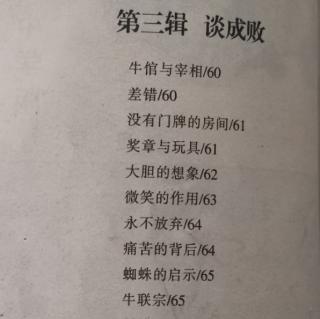 第三辑 谈成败
牛倌与宰相/60
差错/60
没有门牌的房间/61
奖章与玩具/61
大胆的想象/62
微笑的作用/63
永不放弃/64
痛苦的背后/64
蜘蛛的启示/65
牛联宗/65